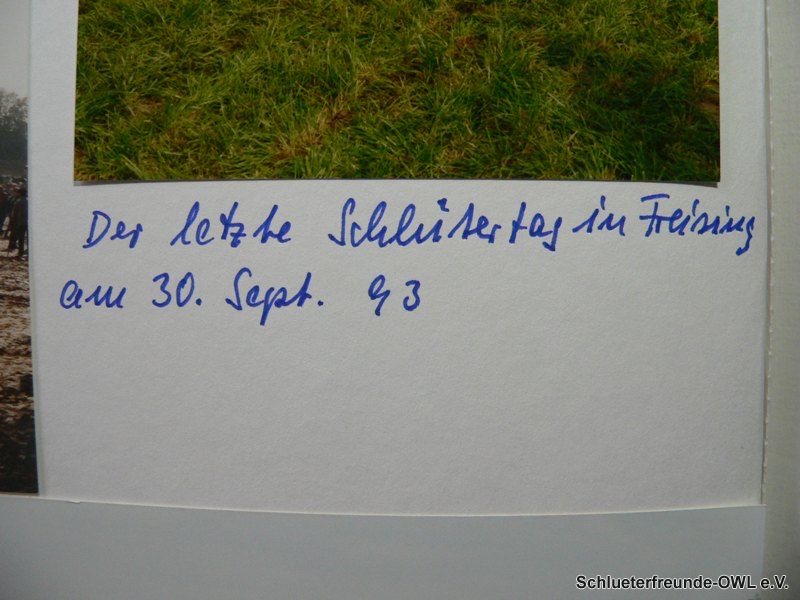 Der letzte Schlütertag in Freising
am 30. Sept. 93
Schlueterfreunde-OWL e.V.